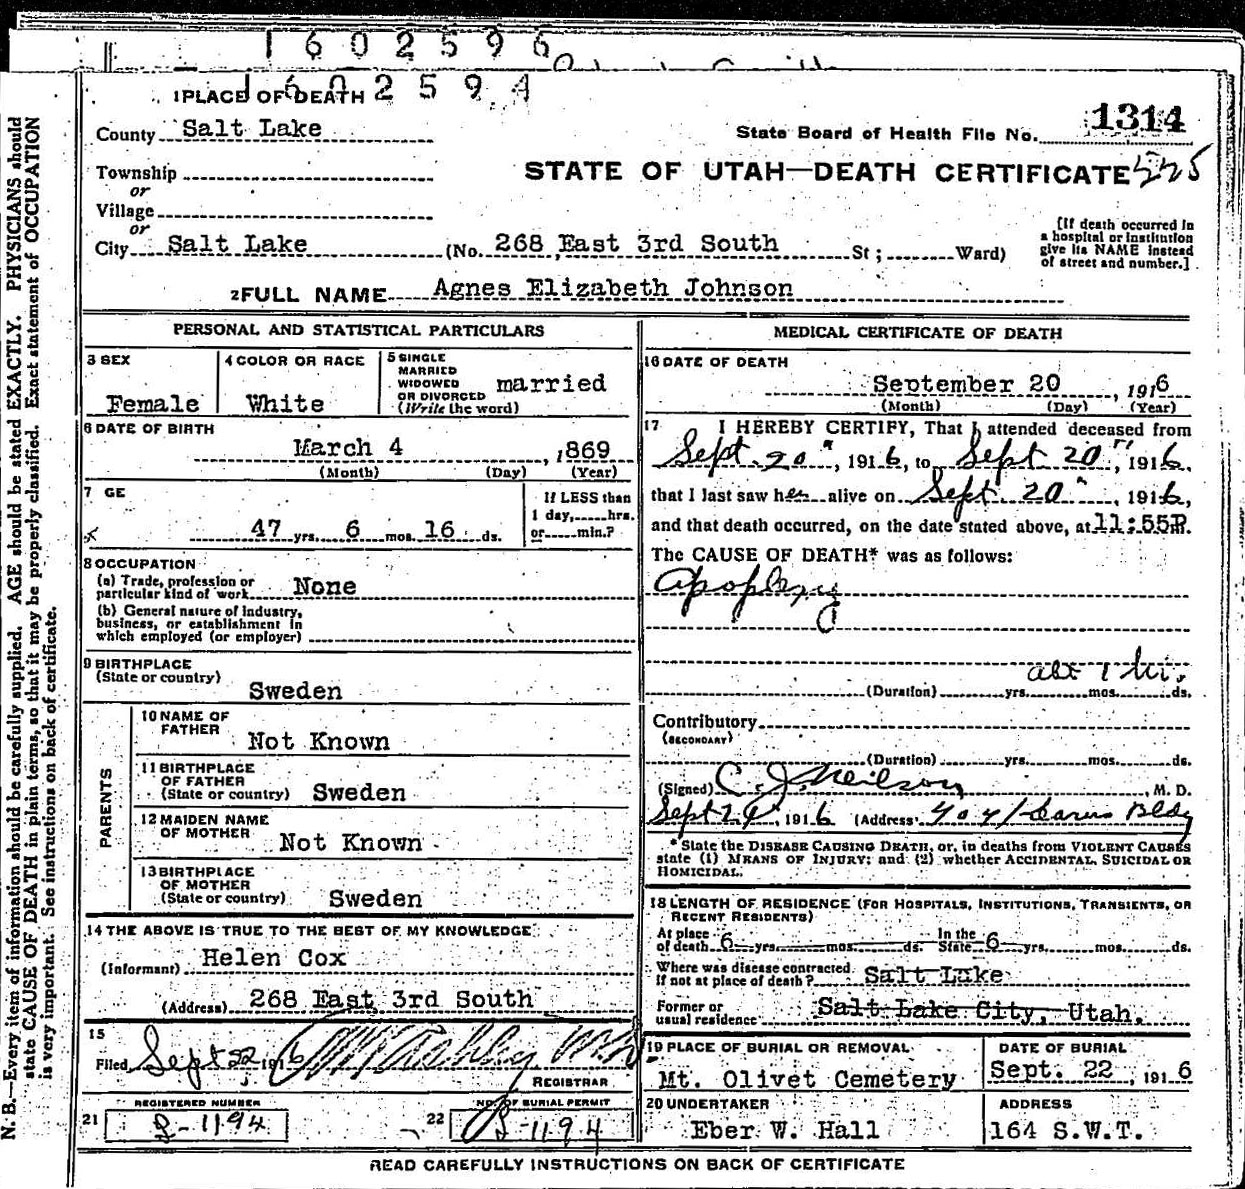 1602596
1602594
1 PLACE OF DEATH
County Salt Lake
State Board of Health File No. 1314
Township
or
STATE OF UTAH—DEATH CERTIFICATE
Village
or
City Salt Lake (No. 268 East 3rd South St ; Ward)
[If death occurred in
a hospital or institution
give its NAME instead
of street and number.]
2 FULL NAME Agnes Elizabeth Johnson
PERSONAL AND STATISTICAL PARTICULARS
3 SEX
Female
4 COLOR OR RACE
White
5 SINGLE
MARRIED
WIDOWED
OR DIVORCED
(Write the word)
married
6 DATE OF BIRTH
March 4, 1869
(Month) (Day) (Year)
7 GE
47 yrs. 6 mos. 16 ds.
If LESS than
1 day, hrs.
or min.?
8 OCCUPATION
(a) Trade, profession or
particular kind of work None
(b) General nature of industry,
business, or establishment in
which employed (or employer)
9 BIRTHPLACE
(State or country)
Sweden
PARENTS
10 NAME OF
FATHER
Not Known
11 BIRTHPLACE
OF FATHER
(State or country) Sweden
12 MAIDEN NAME
OF MOTHER
Not Known
13 BIRTHPLACE
OF MOTHER
(State or country) Sweden
14 THE ABOVE IS TRUE TO THE BEST OF MY KNOWLEDGE
(Informant) Helen Cox
(Address) 268 East 3rd South
15
Filed Sept 22 1916
REGISTRAR
21
REGISTERED NUMBER
1194
22
NO. OF BURIAL PERMIT
1194
MEDICAL CERTIFICATE OF DEATH
16 DATE OF DEATH
September 20, 1916
(Month) (Day) (Year)
17 I HEREBY CERTIFY, That I attended deceased from
Sept. 20", 1916, to Sept 20", 1916,
that I last saw her alive on Sept. 20", 1916,
and that death occurred, on the date stated above, at 11:55P.
The CAUSE OF DEATH* was as follows:
Apoplexy
abt 1 hr.
(Duration) yrs. mos. ds.
Contributory
(SECONDARY)
(Duration) yrs. mos. ds.
(Signed) C. J. Neilson, M. D.
Sept 1916 (Address) Bldg
* State the DISEASE CAUSING DEATH, or, in deaths from VIOLENT CAUSES
state (1) MEANS OF INJURY; and (2) whether ACCIDENTAL, SUICIDAL OR
HOMICIDAL.
18 LENGTH OF RESIDENCE (FOR HOSPITALS, INSTITUTIONS, TRANSIENTS, OR
RECENT RESIDENTS)
At place In the
of death 6 yrs. mos. ds. State 6 yrs. mos. ds.
Where was disease contracted
if not at place of death? Salt Lake
Former or
usual residence Salt Lake City, Utah.
19 PLACE OF BURIAL OR REMOVAL
Mt. Olivet Cemetery
DATE OF BURIAL
Sept. 22, 1916
20 UNDERTAKER
Eber W. Hall
ADDRESS
164 S.W.T.
READ CAREFULLY INSTRUCTIONS ON BACK OF CERTIFICATE
N. B.—Every item of information should be carefully supplied. AGE should be stated EXACTLY. PHYSICIANS should
state CAUSE OF DEATH in plain terms, so that it may be properly classified. Exact statement of OCCUPATION
is very important. See instructions on back of certificate.